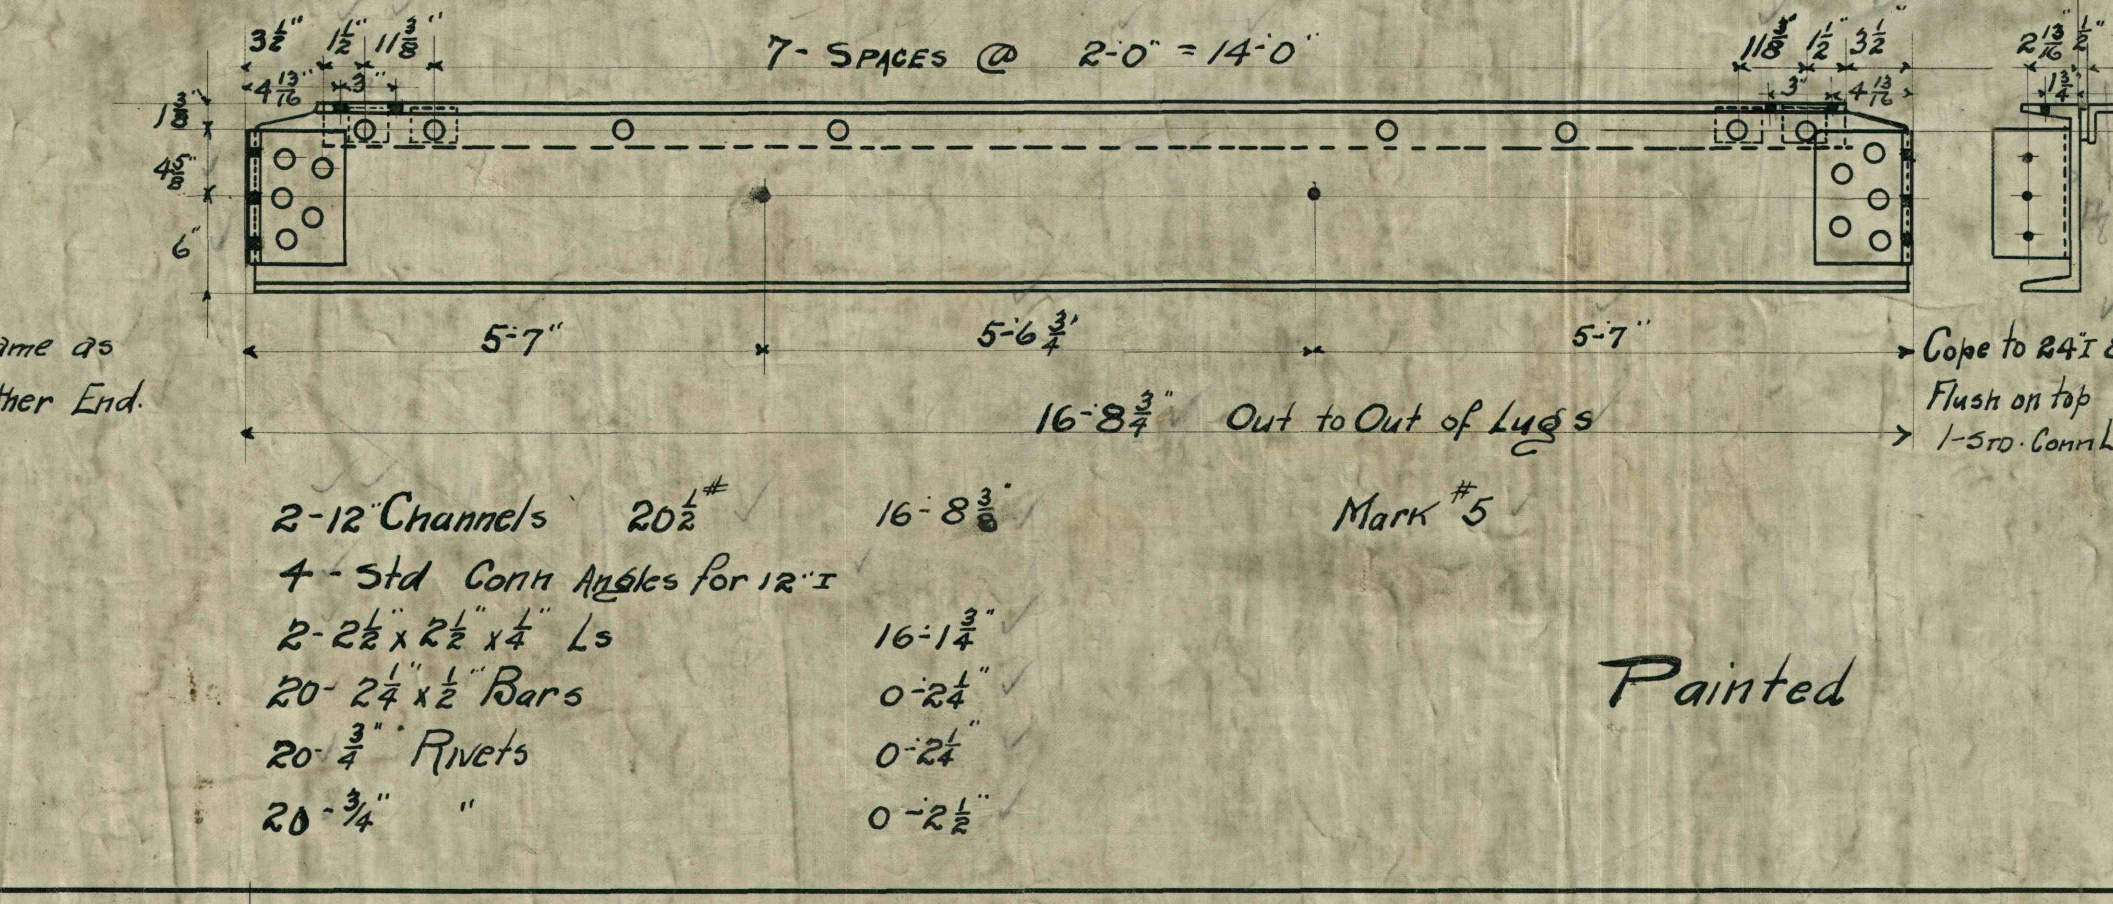 3½" 1½" 11⅜" 7- SPACES @ 2-0" = 14-0" 11⅜" 1½" 3½" 2 13/16" ½"
4 13/16" 3" 3" 4 13/16" 1¾"
1⅜"
4⅝"
6"
5-7" 5-6¾" 5-7"
ame as
ther End.
Cope to 24"I &
Flush on top
1-STD. Conn L
16-8¾" Out to Out of Lugs
2-12" Channels 20½# 16-8⅜" Mark #5
4 - Std Conn Angles for 12" I
2- 2½" x 2½" x ¼" Ls 16-1¾"
20- 2¼" x ½" Bars 0-2¼"
Painted
20- ¾" Rivets 0-2¼"
20-¾" " 0-2½"